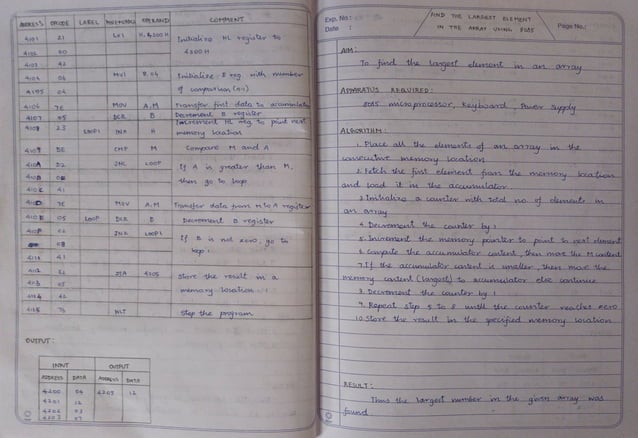 ADDRESS OPCODE LABEL MNEMONIC OPERAND COMMENT
4101 21 LXI H,4200H Initialize HL register to
4102 00 4200H
4103 42
4104 06 MVI B,04 Initialize B reg with number
4105 04 of comparison (n-1)
4106 7E MOV A,M Transfer first data to accumulator
4107 05 DCR B Decrement B register
4108 23 LOOP1 INX H Increment HL reg to point next
memory location
4109 BE CMP M Compare M and A
410A D2 JNC LOOP If A is greater than M,
410B 0E then go to loop
410C 41
410D 7E MOV A,M Transfer data from M to A register
410E 05 LOOP DCR B Decrement B register
410F C2 JNZ LOOP1 If B is not zero, go to
08 loop 1
4111 41
4112 32 STA 4205 Store the result in a
4113 05 memory location
4114 42
4115 76 HLT Stop the program
OUTPUT:
INPUT OUTPUT
ADDRESS DATA ADDRESS DATA
4200 04 4205 12
4201 12
4202 03
4203 07
Exp. No.:
Date :
FIND THE LARGEST ELEMENT
IN THE ARRAY USING 8085
Page No.:
AIM:
To find the largest element in an array
APPARATUS REQUIRED:
8085 microprocessor, Keyboard, Power supply
ALGORITHM:
1. Place all the elements of an array in the
consecutive memory location
2. Fetch the first element from the memory location
and load it in the accumulator.
3. Initialize a counter with total no. of elements in
an array
4. Decrement the counter by 1
5. Increment the memory pointer to point to next element
6. Compare the accumulator content, then more the M content
7. If the accumulator content is smaller, then move the
memory content (largest) to accumulator else continue.
8. Decrement the counter by 1
9. Repeat step 5 to 8 until the counter reaches zero
10. Store the result in the specified memory location
RESULT:
Thus the largest number in the given array was
found